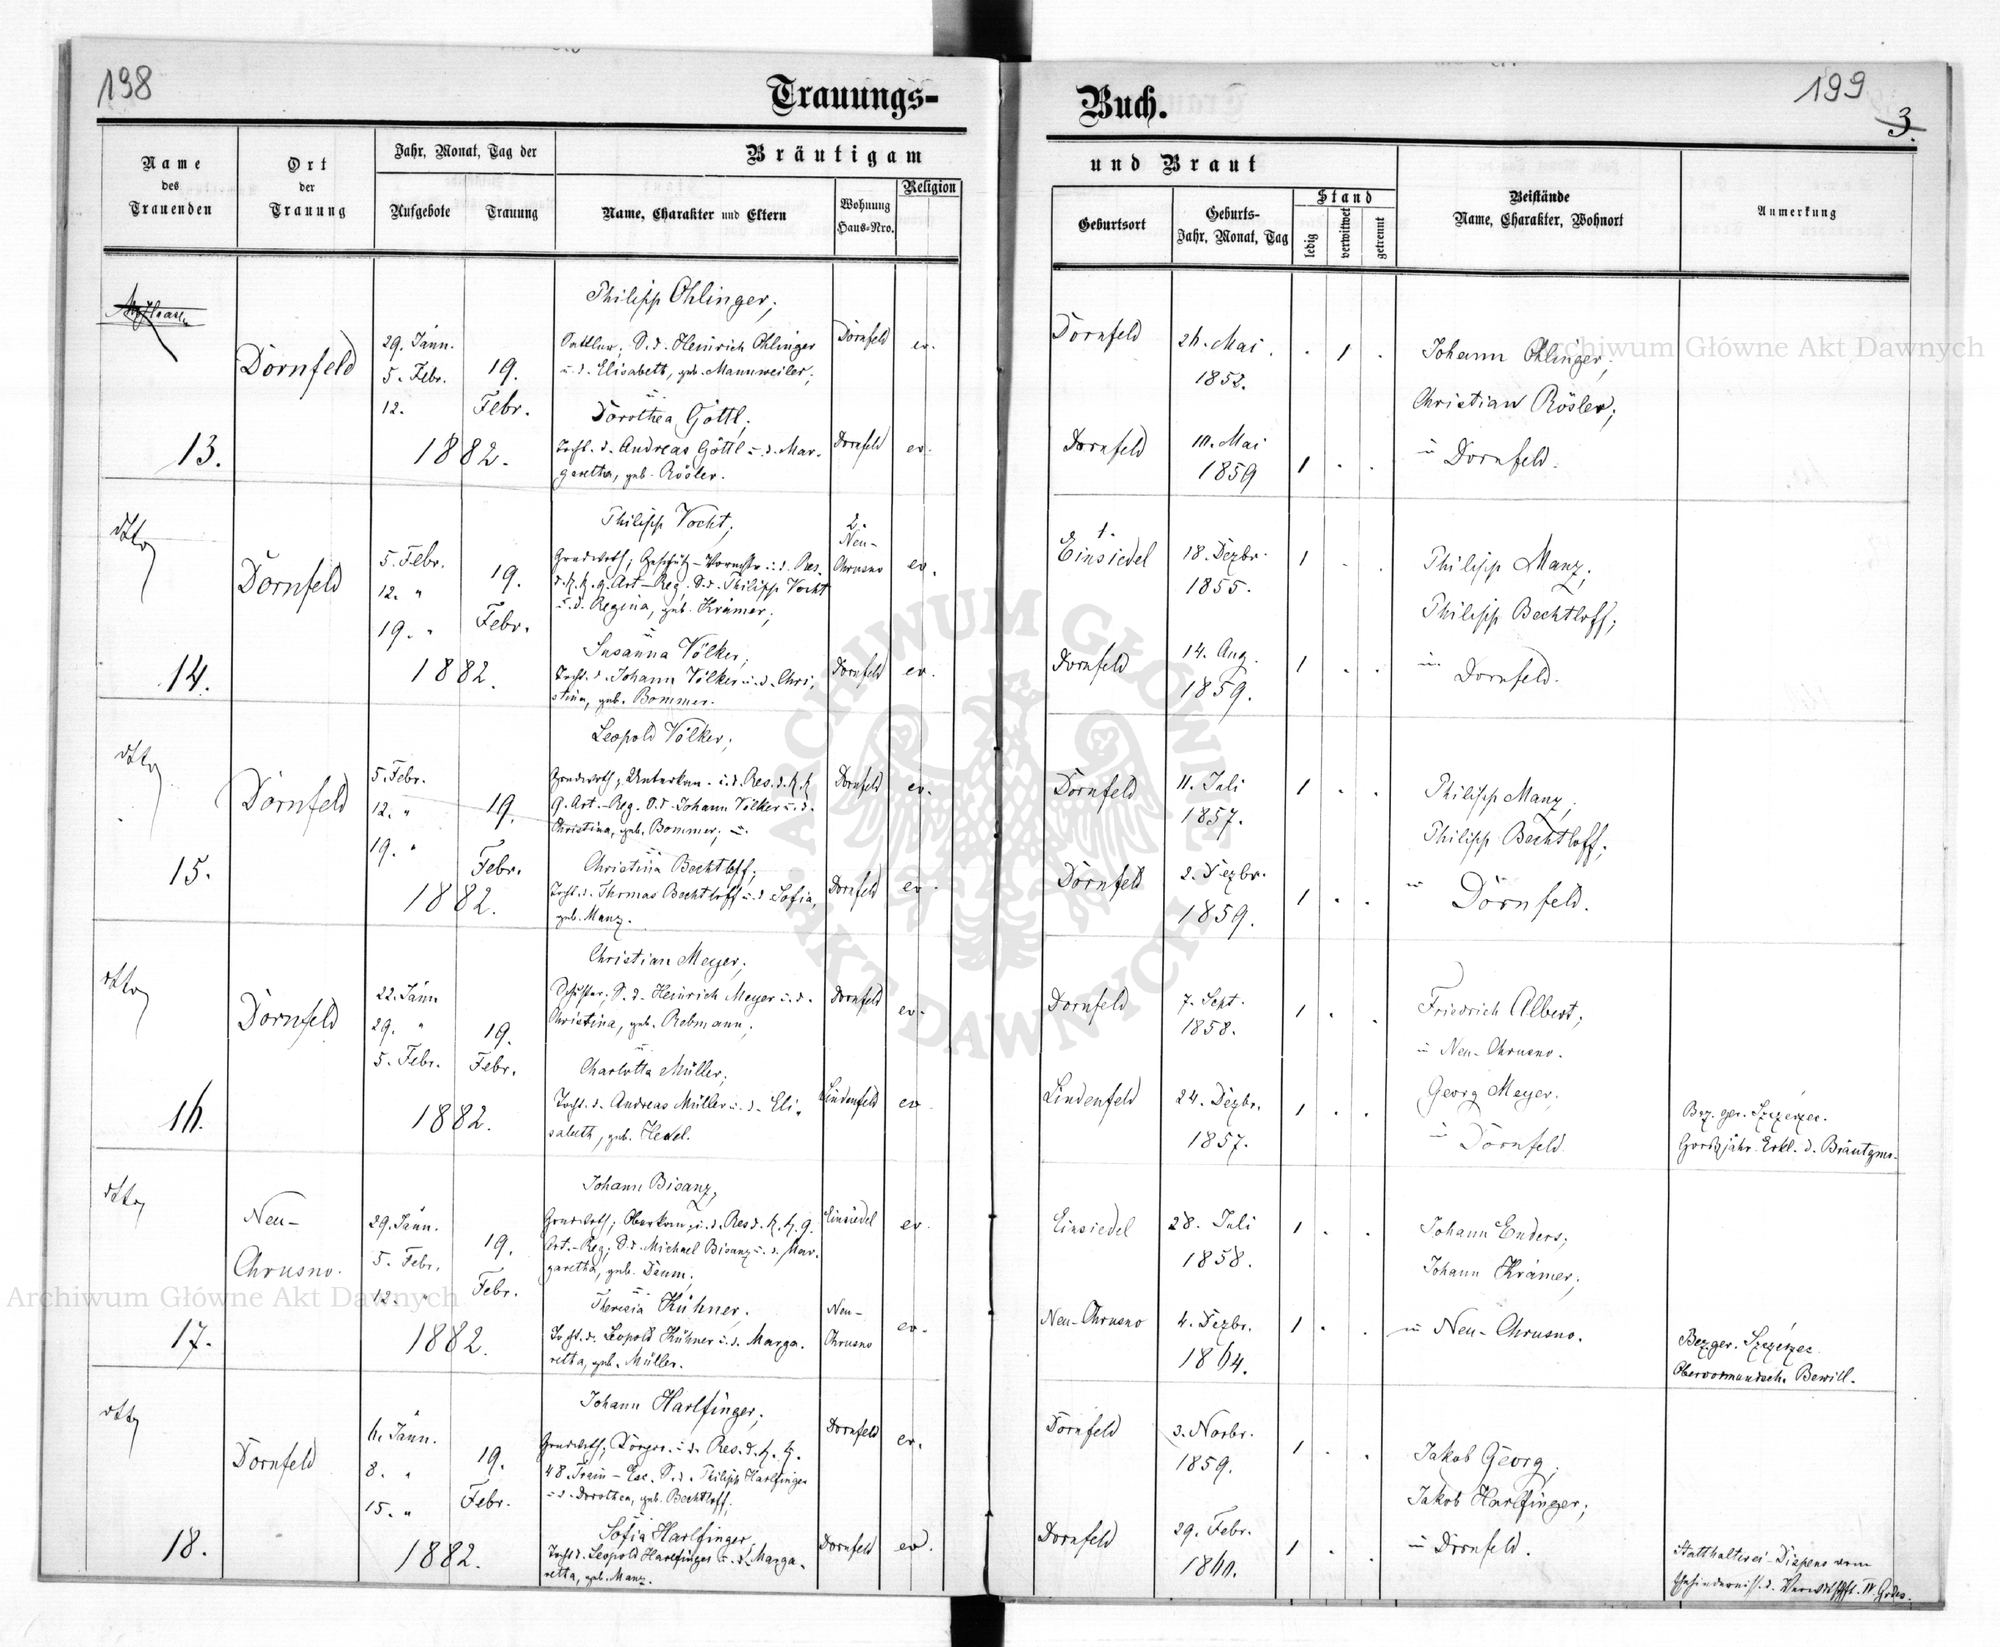 198
199
3.
Trauungs-
Buch.
Name des Trauenden
Ort der Trauung
Jahr, Monat, Tag der
Aufgebote
Trauung
Bräutigam
und Braut
Name, Charakter und Eltern
Wohnung Haus-Nro.
Religion
Geburtsort
Geburts-
Jahr, Monat, Tag
Stand
ledig
verwitwet
getrennt
Beistände
Name, Charakter, Wohnort
Anmerkung
13.
Dornfeld
29. Jänn.
5. Febr.
12.
19.
Febr.
1882.
Philipp Ohlinger;
Sattler; S. d. Heinrich Ohlinger
u. d. Elisabeth, geb. Mannweiler;
u.
Dorothea Göttl;
Tocht. d. Andreas Göttl u. d. Mar-
garetha, geb. Rösler.
Dornfeld
ev.
Dornfeld
ev.
Dornfeld
26. Mai
1852.
1
Dornfeld
10. Mai
1859
1
Johann Ohlinger;
Christian Rösler;
in Dornfeld.
dtto
14.
Dornfeld
5. Febr.
12. "
19. "
19.
Febr.
1882.
Philipp Vocht;
Grundwirth; Geschütz-Vormstr. i. d. Res.
d. K. K. 9. Art-Reg; S. d. Philipp Vocht
u. d. Regina, geb. Krämer;
u.
Susanna Völker,
Tocht. d. Johann Völker u. d. Chri-
stina, geb. Bommer.
2.
Neu-
Chrusno
ev.
Dornfeld
ev.
1.
Einsiedel
18. Dezbr.
1855.
1
Dornfeld
14. Aug.
1859.
1
Philipp Manz;
Philipp Bechtloff;
in Dornfeld.
dtto
15.
Dornfeld
5. Febr.
12. "
19. "
19.
Febr.
1882.
Leopold Völker;
Grundwirth; Unterkan. i. d. Res. d. K. K.
9. Art.-Reg. S. d. Johann Völker u. d.
Christina, geb. Bommer; u.
Christina Bechtloff;
Tocht. d. Thomas Bechtloff u. d. Sofia,
geb. Manz.
Dornfeld
ev.
Dornfeld
ev.
Dornfeld
11. Juli
1857.
1
Dornfeld
2. Dezbr.
1859.
1
Philipp Manz;
Philipp Bechtloff;
in Dornfeld.
dtto
16.
Dornfeld
22. Jänn
29. "
5. Febr.
19.
Febr.
1882.
Christian Meyer;
Schuster; S. d. Heinrich Meyer u. d.
Christina, geb. Rebmann;
u.
Charlotta Müller;
Tocht. d. Andreas Müller u. d. Eli-
sabeth, geb. Hedel.
Dornfeld
ev.
Lindenfeld
ev
Dornfeld
7. Sept.
1858.
1
Lindenfeld
24. Dezbr.
1857.
1
Friedrich Albert;
in Neu-Chrusno.
Georg Meyer;
in Dornfeld
Bez. ger. Szczerzec.
Großjähr. Erkl. d. Bräutgms.
dtto
17.
Neu-
Chrusno.
29. Jänn.
5. Febr.
12. "
19.
Febr.
1882.
Johann Bisanz,
Grundwirth; Oberkan. i. d. Res d. K. K. 9.
Art.-Reg; S. d. Michael Bisanz u. d. Mar-
garetha, geb. Daum;
u.
Theresia Kühner.
Tocht. d. Leopold Kühner u. d. Marga-
retta, geb. Müller.
Einsiedel
ev.
Neu-
Chrusno
ev.
Einsiedel
28. Juli
1858.
1
Neu-Chrusno
4. Dezbr.
1864.
1
Johann Enders;
Johann Krämer;
in Neu-Chrusno.
Bezger. Szczerzec
Obervormundsch. Bewill.
dtto
18.
Dornfeld
6. Jänn.
8. "
15. "
19.
Febr.
1882.
Johann Harlfinger;
48. Train-Esc. S. d. Philipp Harlfinger
u. d. Dorothea, geb. Bechtloff;
Sofia Harlfinger,
Tocht d. Leopold Harlfinger u. d. Marga-
retta, geb. Manz.
Dornfeld
ev.
Dornfeld
ev.
Dornfeld
3. Novbr.
1859.
1
Dornfeld
29. Febr.
1860.
1
Jakob Georg;
Jakob Harlfinger;
in Dornfeld.
Statthalterei-Dispens vom
Ehehinderniss d. Verwdtschft. IV. Grdes.
Archiwum Główne Akt Dawnych
Archiwum Główne Akt Dawnych
ARCHIWUM GŁÓWNE AKT DAWNYCH